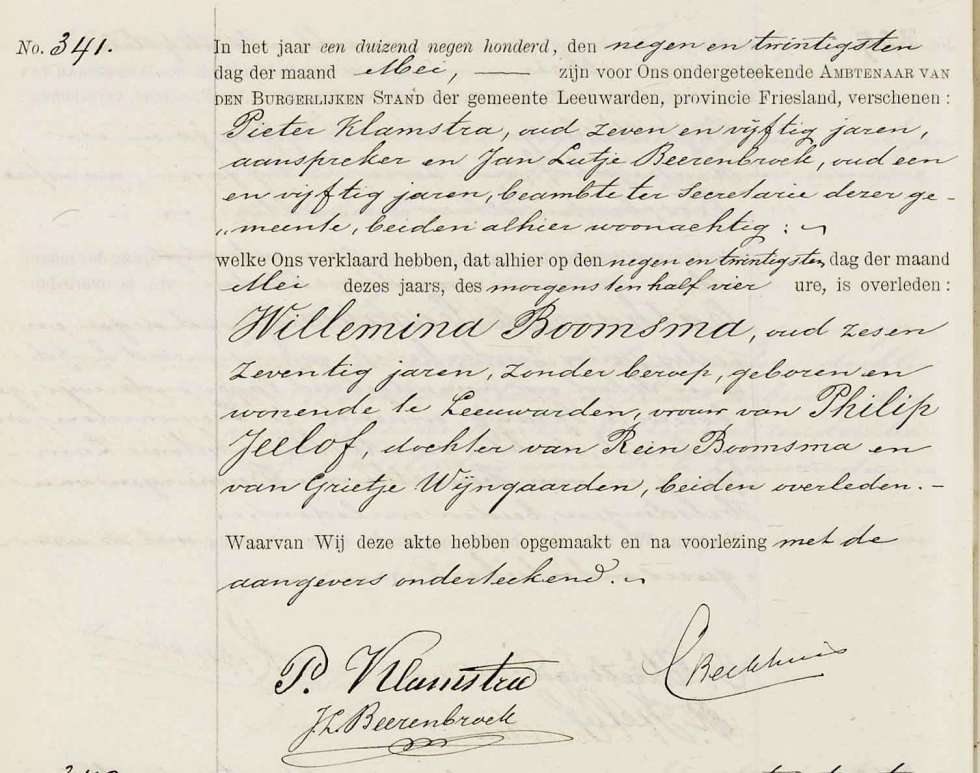 No. 341. In het jaar een duizend negen honderd, den negen en twintigsten
dag der maand Mei, — zijn voor Ons ondergeteekende Ambtenaar van
den Burgerlijken Stand der gemeente Leeuwarden, provincie Friesland, verschenen:
Pieter Klamstra, oud zeven en vijftig jaren,
aanspreker en Jan Lutje Beerenbroek, oud een
en vijftig jaren, beambte ter Secretarie dezer ge-
„meente, beiden alhier woonachtig:
welke Ons verklaard hebben, dat alhier op den negen en twintigsten dag der maand
Mei dezes jaars, des morgens ten half vier ure, is overleden:
Willemina Boomsma, oud zes en
zeventig jaren, zonder beroep, geboren en
wonende te Leeuwarden, vrouw van Philip
Jeelof, dochter van Rein Boomsma en
van Grietje Wijngaarden, beiden overleden. –
Waarvan Wij deze akte hebben opgemaakt en na voorlezing met de
aangevers onderteekend.
P. Klamstra
J. L. Beerenbroek